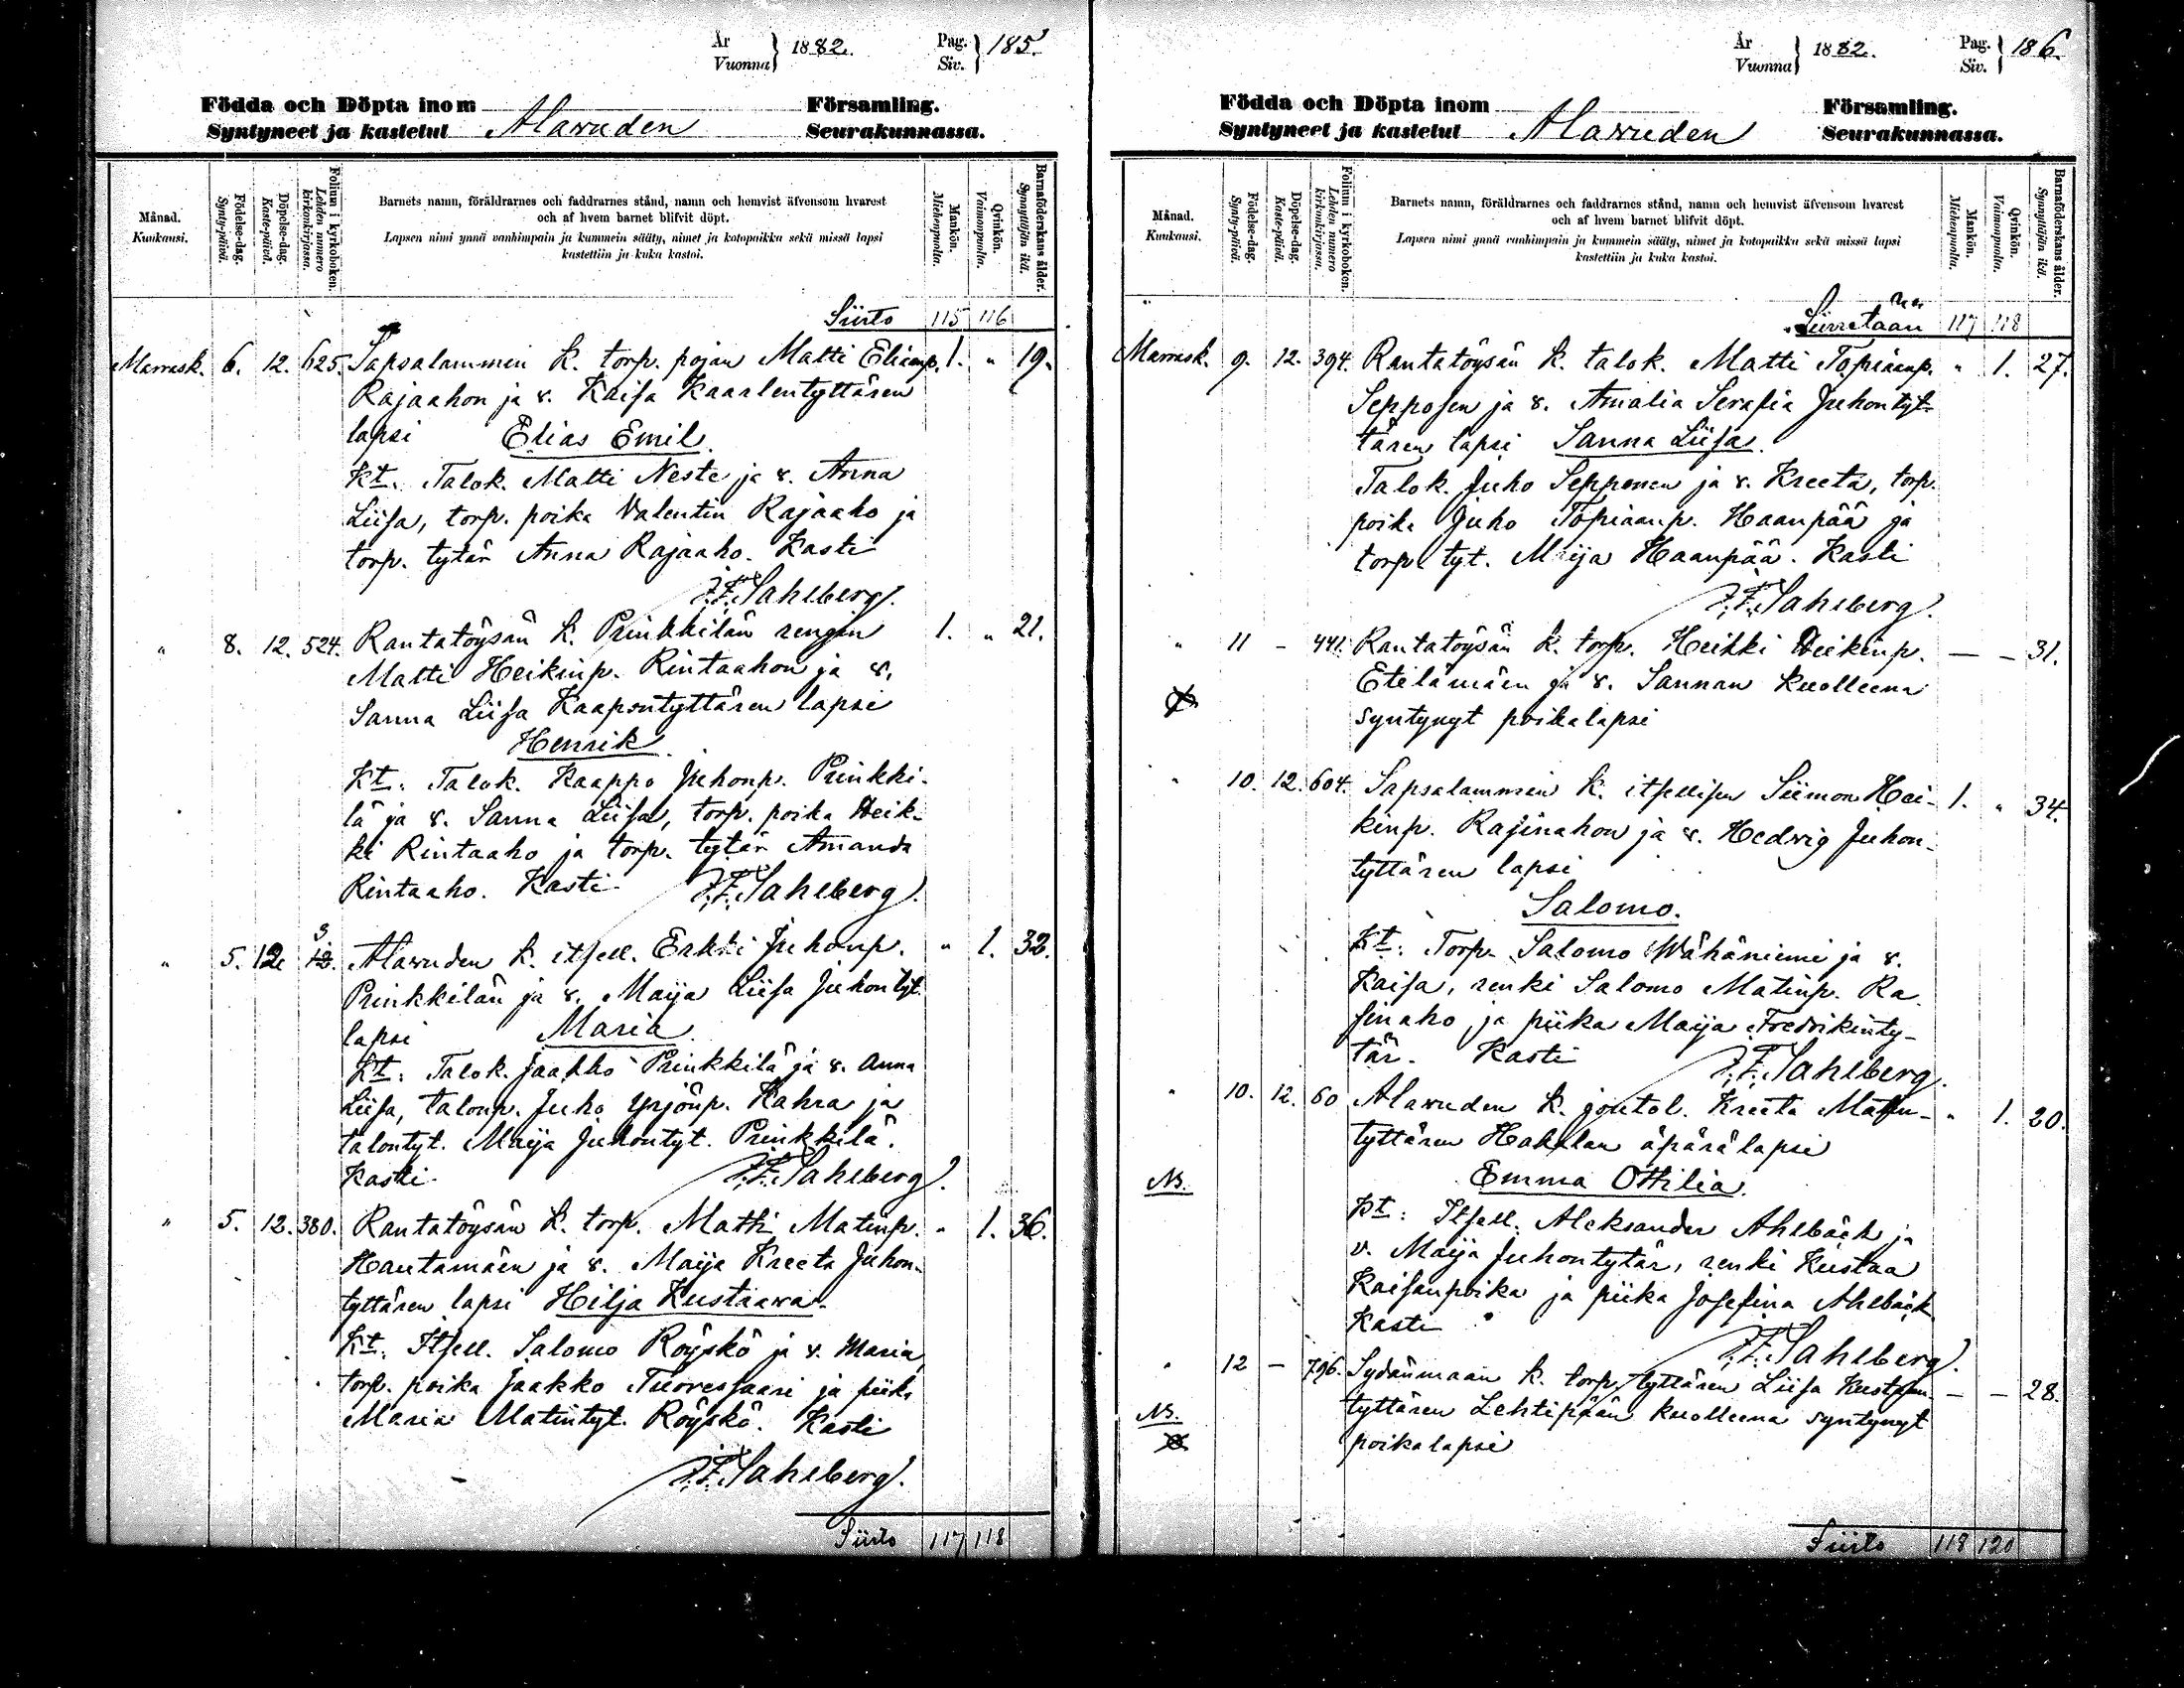 År
Vuonna } 1882. Pag.
Siv. } 185.
Födda och Döpta inom Församling.
Syntyneet ja kastetut Alavuden Seurakunnassa.
Månad.
Kuukausi.
Födelse-dag.
Synty-päivä.
Döpelse-dag.
Kaste-päivä.
Folium i kyrkoboken.
Lehden numero
kirkonkirjassa.
Barnets namn, föräldrarnes och faddrarnes stånd, namn och hemvist äfvensom hvarest
och af hvem barnet blifvit döpt.
Lapsen nimi ynnä vanhimpain ja kummein sääty, nimet ja kotopaikka sekä missä lapsi
kastettiin ja kuka kastoi.
Mankön.
Miehenpuolia.
Qvinkön.
Vaimonpuolia.
Barnaföderskans ålder.
Synnyttäjän ikä.
Siirto 115 116
Marrask. 6. 12. 625. Sapsalammin k. torp. pojan Matti Eliaanp. 1. " 19.
Rajaahon ja v. Kaisa Kaarlentyttären
lapsi Elias Emil.
Kt. Talok. Matti Neste ja v. Anna
Liisa, torp. poika Valentin Rajaaho ja
torp. tytär Anna Rajaaho. Kasti
J.F. Sahlberg.
" 8. 12. 524. Rantatöysän k. Prinkkilän rengin 1. " 21.
Matti Heikinp. Rintaahon ja v.
Sanna Liisa Kaapontyttären lapsi
Henrik.
Kt. Talok. Kaappo Juhonp. Prinkki-
lä ja v. Sanna Liisa, torp. poika Heik-
ki Rintaaho ja torp. tytär Amanda
Rintaaho. Kasti J.F. Sahlberg.
3
" 5. 12. 12. Alavuden k. itsell. Erkki Juhonp. " 1. 32.
Prinkkilän ja v. Maija Liisa Juhontyt.
lapsi Maria.
Kt. Talok. Jaakko Prinkkilä ja v. Anna
Liisa, talonp. Juho Yrjönp. Kahra ja
talontyt. Maija Juhontyt. Prinkkilä.
Kasti J.F. Sahlberg.
" 5. 12. 380. Rantatöysän k. torp. Matti Matinp. " 1. 36.
Hautamäen ja v. Maija Kreeta Juhon-
tyttären lapsi Hilja Kustaava.
Kt. Itsell. Salomo Röyskö ja v. Maria,
torp. poika Jaakko Tuoressaari ja piika
Maria Matintyt. Röyskö. Kasti
J.F. Sahlberg.
Siirto 117 118
År
Vuonna } 1882. Pag.
Siv. } 186.
Födda och Döpta inom Församling.
Syntyneet ja kastetut Alavuden Seurakunnassa.
Månad.
Kuukausi.
Födelse-dag.
Synty-päivä.
Döpelse-dag.
Kaste-päivä.
Folium i kyrkoboken.
Lehden numero
kirkonkirjassa.
Barnets namn, föräldrarnes och faddrarnes stånd, namn och hemvist äfvensom hvarest
och af hvem barnet blifvit döpt.
Lapsen nimi ynnä vanhimpain ja kummein sääty, nimet ja kotopaikka sekä missä lapsi
kastettiin ja kuka kastoi.
Mankön.
Miehenpuolia.
Qvinkön.
Vaimonpuolia.
Barnaföderskans ålder.
Synnyttäjän ikä.
Siirretään 117 118
Marrask. 9. 12. 394. Rantatöysän k. talok. Matti Topiaanp. " 1. 27.
Sepposen ja v. Amalia Serafia Juhontyt-
tären lapsi Sanna Liisa.
Talok. Juho Sepponen ja v. Kreeta, torp.
poika Juho Topiaanp. Haanpää ja
torp. tyt. Maija Haanpää. Kasti
J.F. Sahlberg.
" 11 - 441. Rantatöysän k. torp. Heikki Heikinp. — — 31.
Etelämäen ja v. Sannan kuolleena
syntynyt poikalapsi
" 10. 12. 604. Sapsalammin k. itsellisen Siimon Hei- 1. " 34.
kinp. Rajinahon ja v. Hedvig Juhon-
tyttären lapsi
Salomo.
Kt: Torp. Salomo Wähäniemi ja v.
Kaisa, renki Salomo Matinp. Ra-
jinaho ja piika Maija Fredrikinty-
tär. Kasti J.F. Sahlberg.
" 10. 12. 60 Alavuden k. joutol. Kreeta Matin- " 1. 20.
tyttären Hakalan äpärälapsi
NB. Emma Ottilia.
Kt: Itsell. Aleksander Ahlbäck ja
v. Maija Juhontytär, renki Kustaa
Kaisanpoika ja piika Josefina Ahlbäck
Kasti J.F. Sahlberg.
" 12 - 796. Sydänmaan k. torp. tyttären Liisa Kustaan- — — 28.
NB. tyttären Lehtipään kuolleena syntynyt
poikalapsi
Siirto 118 120